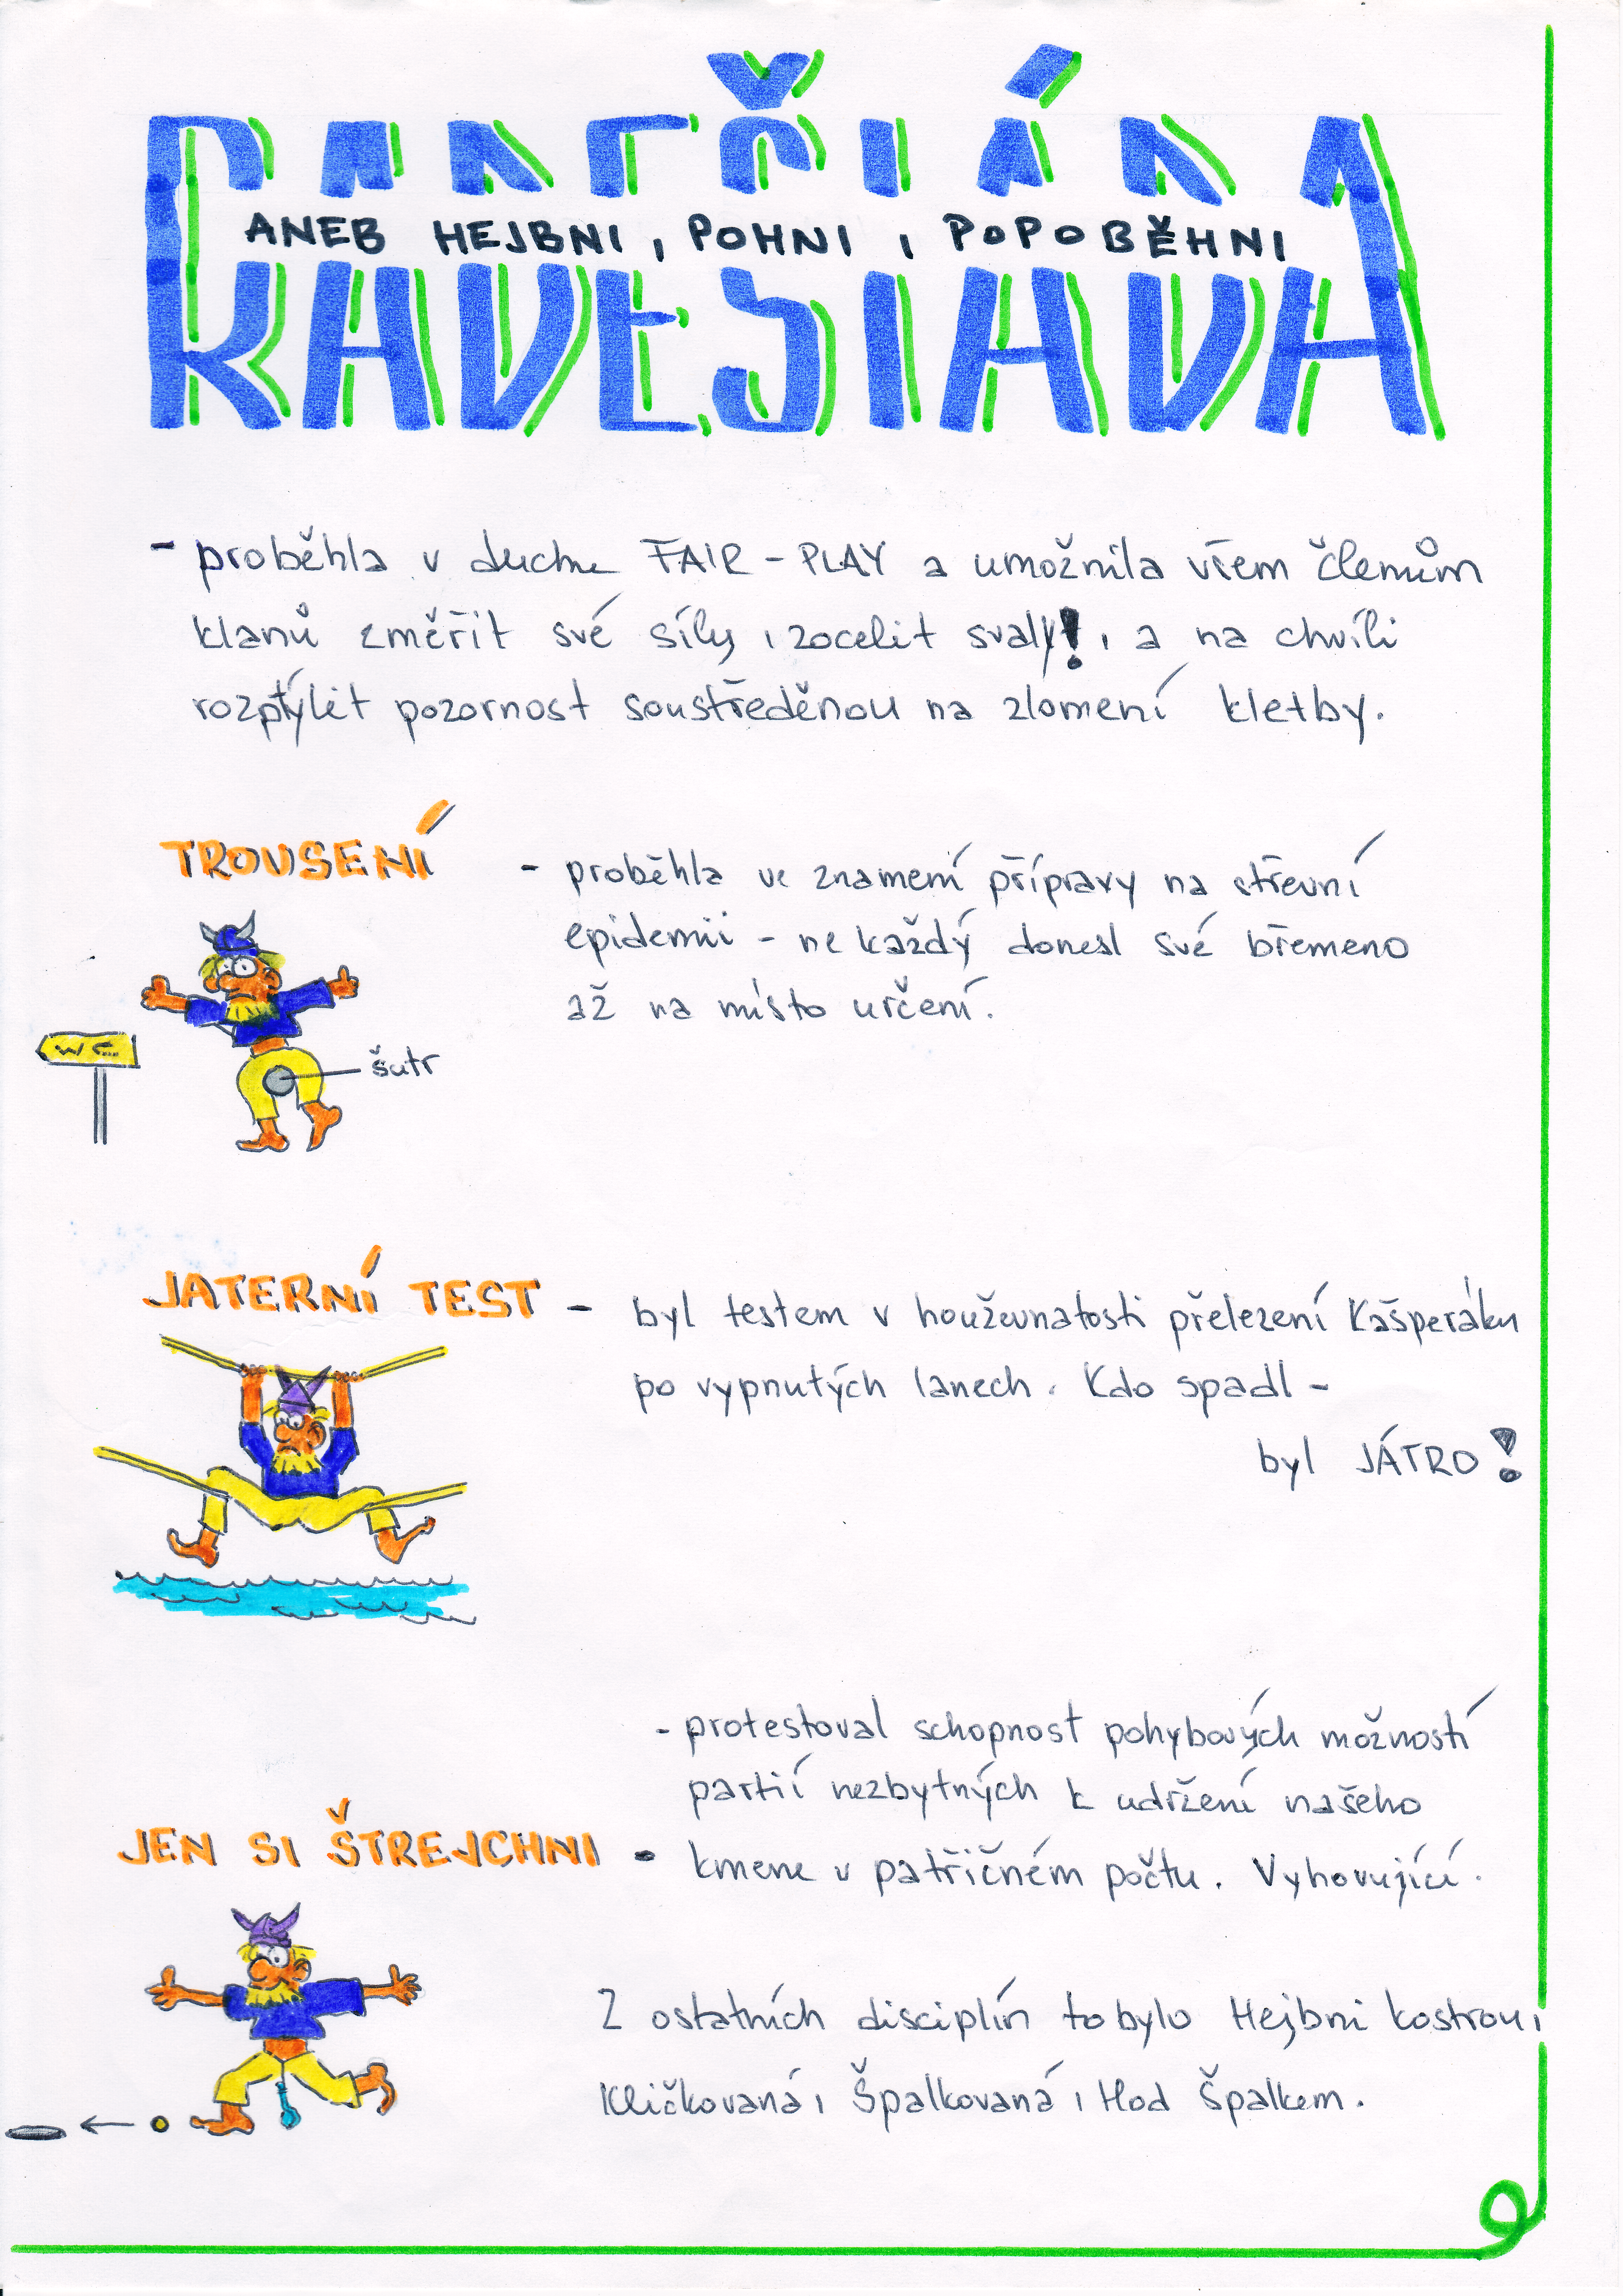 RADEŠIÁDA
ANEB HEJBNI, POHNI, POPOBĚHNI
- proběhla v duchu FAIR-PLAY a umožnila všem členům
klanů změřit své síly, zocelit svaly!, a na chvíli
rozptýlit pozornost soustředěnou na zlomení kletby.
TROUSENÍ
- proběhla ve znamení přípravy na střevní
epidemii - ne každý donesl své břemeno
až na místo určení.
WC
šutr
JATERNÍ TEST - byl testem v houževnatosti přelezení Kašperáku
po vypnutých lanech. Kdo spadl -
byl JÁTRO!
- protestoval schopnost pohybových možností
partií nezbytných k udržení našeho
JEN SI ŠTREJCHNI - kmene v patřičném počtu. Vyhovující.
Z ostatních disciplín to bylo Hejbni kostrou,
Kličkovaná, Špalkovaná, Hod Špalkem.